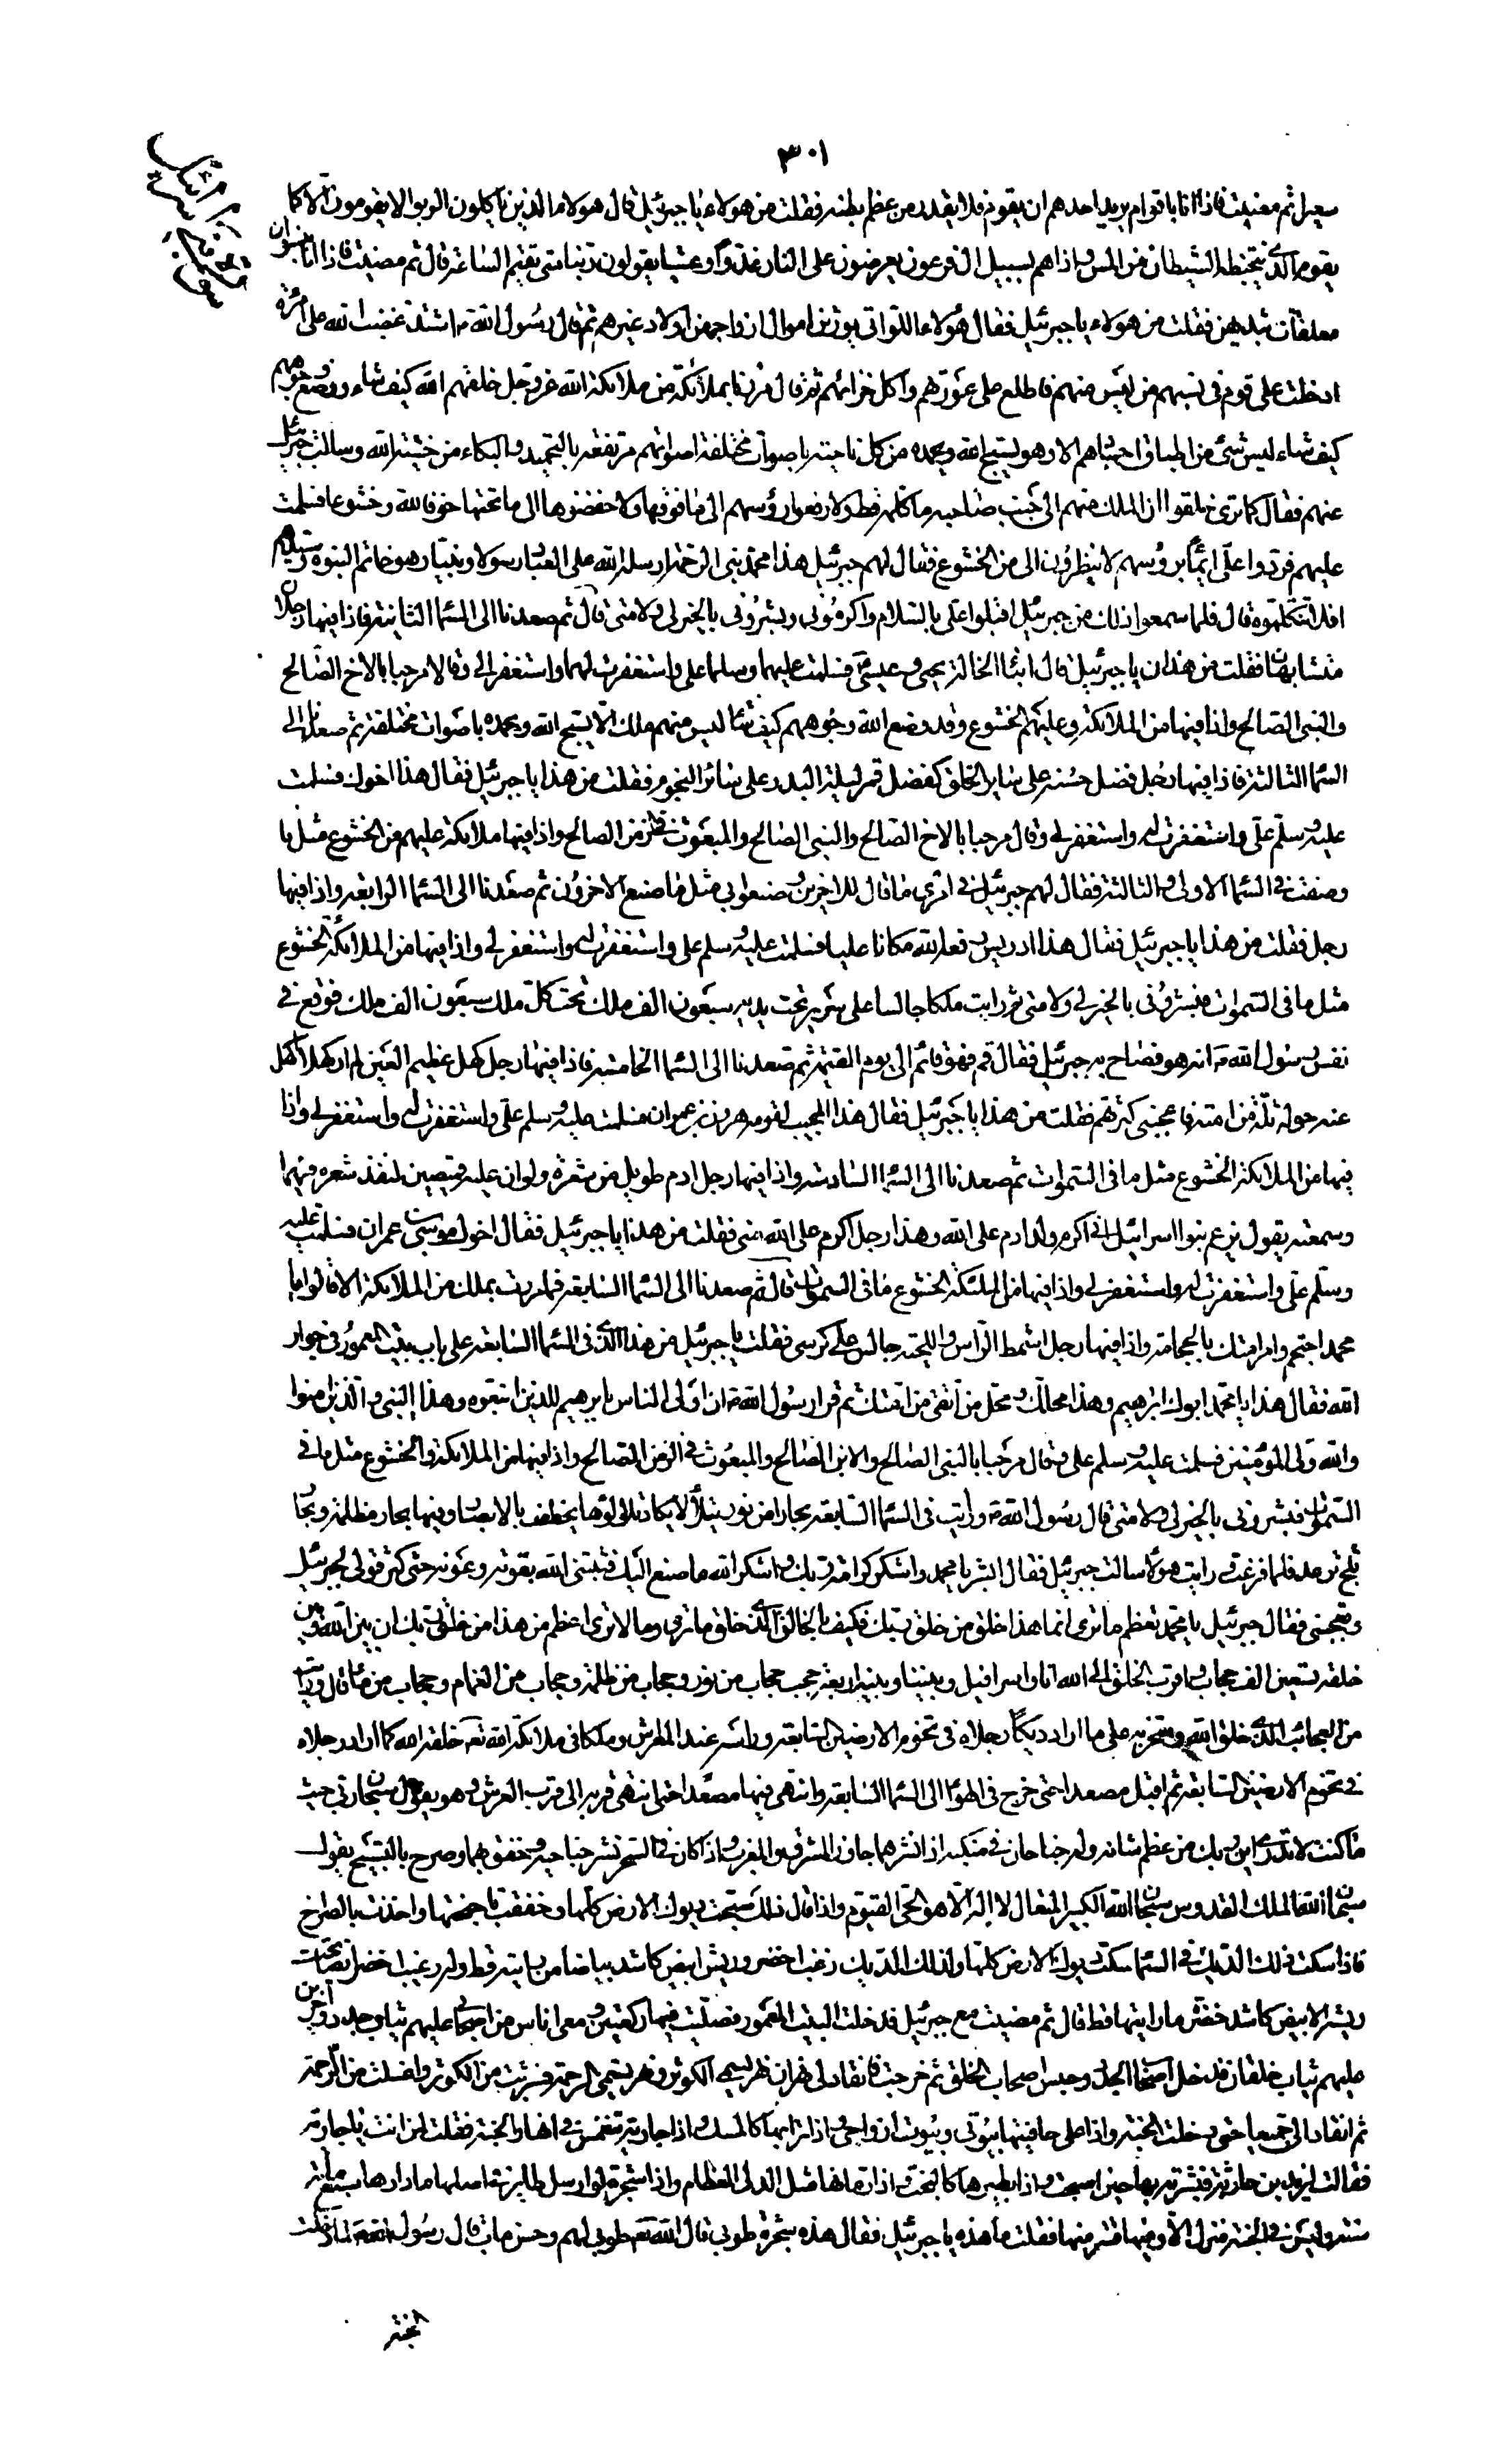 ٣٠١
سعيرا ثم مضيت فاذا انا باقوام يريد احدهم ان يقوم فلا يقدر من عظم بطنه فقلت من هولاء يا جبرئيل قال هولاء الذين ياكلون الربوا لا يقومون الا كما
يقوم الذى يتخبطه الشيطان من المس واذا هم بسبيل ال فرعون يعرضون على النار غدوا وعشيا يقولون ربنا متى تقيم الساعة قال ثم مضيت فاذا انا بنسوان
معلقات بثديهن فقلت من هولاء يا جبرئيل فقال هؤلاء اللواتى يورثن اموال ازواجهن اولاد غيرهم ثم قال رسول الله ص اشتد غضب الله على امرئة
ادخلت على قوم فى نسبهم من ليس منهم فاطلع على عورتهم واكل خزائنهم ثم قال مررنا بملائكة من ملائكة الله عز وجل خلقهم الله كيف شاء ووضع وجوههم
كيف شاء ليس شئ من اطباق اجسادهم الا وهو يسبح الله ويحمده من كل ناحية باصوات مختلفة اصواتهم مرتفعة بالتحميد والبكاء من خشية الله وسالت جبرئيل
عنهم فقال كما ترى خلقوا ان الملك منهم الى جنب صاحبه ما كلمه قط ولا رفعوا رؤسهم الى ما فوقها ولا خفضوها الى ما تحتها خوفا لله وخشوعا فسلمت
عليهم فردوا على ايماء برؤسهم لا ينظرون الى من الخشوع فقال لهم جبرئيل هذا محمد نبى الرحمة ارسله الله على العباد رسولا ونبيا وهو خاتم النبوة وسيدهم
افلا تكلموه قال فلما سمعوا ذلك من جبرئيل اقبلوا على بالسلام واكرمونى وبشرونى بالخير لى ولامتى قال ثم صعدنا الى السما الثانية فاذا فيها رجلان
متشابهان فقلت من هذان يا جبرئيل قال ابنا الخالة يحيى وعيسى فسلمت عليهما وسلما على واستغفرت لهما واستغفرا لى وقالا مرحبا بالاخ الصالح
والنبى الصالح واذا فيها من الملائكة وعليهم الخشوع وقد وضع الله وجوههم كيف شاء ليس منهم ملك الا يسبح الله وبحمده باصوات مختلفة ثم صعدنا الى
السما الثالثة فاذا فيها رجل فضل حسنه على ساير الخلق كفضل قمر ليلة البدر على سائر النجوم فقلت من هذا يا جبرئيل فقال هذا اخوك فسلمت
عليه وسلم على واستغفرت له واستغفر لى وقال مرحبا بالاخ الصالح والنبى الصالح والمبعوث فى الزمن الصالح واذا فيها ملائكة عليهم من الخشوع مثل ما
وصفت فى السما الاولى والثالثة فقال لهم جبرئيل فى امرى ما قال للاخرين وصنعوا بى مثل ما صنع الاخرون ثم صعدنا الى السما الرابعة واذا فيها
رجل فقلت من هذا يا جبرئيل فقال هذا ادريس رفعه الله مكانا عليا فسلمت عليه وسلم على واستغفرت له واستغفر لى واذا فيها من الملائكة الخشوع
مثل ما فى السموات فبشرونى بالخير لى ولامتى ثم رايت ملكا جالسا على سرير تحت يديه سبعون الف ملك تحت كل ملك سبعون الف ملك فوقع فى
نفس رسول الله ص انه هو فصاح به جبرئيل فقال قم فهو قائم الى يوم القيمة ثم صعدنا الى السما الخامسة فاذا فيها رجل كهل عظيم العين لم ار كهلا اعظم
منه حوله ثلة من امته فاعجبنى كثرتهم فقلت من هذا يا جبرئيل فقال هذا المجيب لقومه هرون بن عمران فسلمت عليه وسلم على واستغفرت له واستغفر لى واذا
فيها من الملائكة الخشوع مثل ما فى السموات ثم صعدنا الى السما السادسة واذا فيها رجل ادم طويل من شعره ولو ان عليه قميصين لنفذ شعره فيهما
وسمعته يقول يزعم بنوا اسرائيل انى اكرم ولد ادم على الله وهذا رجل اكرم على الله منى فقلت من هذا يا جبرئيل فقال اخوك موسى بن عمران فسلمت عليه
وسلم على واستغفرت له واستغفر لى واذا فيها من الملئكة الخشوع ما فى السموات قال ثم صعدنا الى السما السابعة فما مررت بملك من الملائكة الا قالوا يا
محمد احتجم وامر امتك بالحجامة واذا فيها رجل اشمط الراس واللحية جالس على كرسى فقلت يا جبرئيل من هذا الذى فى السما السابعة على باب بيت المعمور فى جوار
الله فقال هذا يا محمد ابوك ابرهيم وهذا محلك ومحل من اتقى من امتك ثم قرا رسول الله ص ان اولى الناس بابرهيم للذين اتبعوه وهذا النبى والذين امنوا
والله ولى المؤمنين فسلمت عليه وسلم على وقال مرحبا بالنبى الصالح والابن الصالح والمبعوث فى الزمن الصالح واذا فيها من الملائكة والخشوع مثل ما فى
السموات فبشرونى بالخير لى ولامتى قال رسول الله ص ورايت فى السما السابعة بحارا من نور يتلألا يكاد تلالؤها يخطف بالابصار وفيها بحار مظلمة وبحار
ثلج ترعد فلما فزعت ورايت هولا سالت جبرئيل فقال ابشر يا محمد واشكر كرامة ربك واشكر الله ما صنع اليك فثبتنى الله بقوته وعونه حتى كثر قولى لجبرئيل
وتعجبى فقال جبرئيل يا محمد تعظم ما ترى انما هذا خلق من خلق ربك فكيف بالخالق الذى خلق ما ترى وما لا ترى اعظم من هذا من خلق ربك ان بين الله وبين
خلقه تسعين الف حجاب واقرب الخلق الى الله انا واسرافيل وبيننا وبينه اربعة حجب حجاب من نور وحجاب من ظلمة وحجاب من الغمام وحجاب من ماء قال ورايت
من العجائب الذى خلق الله وسخر به على ما اراد ديكا رجلاه فى تخوم الارضين السابعة وراسه عند العرش وملكا فى ملائكة الله تعالى خلقه الله كما اراد رجلاه
فى تخوم الارضين السابعة ثم اقبل مصعدا حتى خرج فى الهوا الى السما السابعة وانتهى فيها مصعدا حتى انتهى قرنه الى قرب العرش وهو يقول سبحان ربى حيث
ما كنت لا تدرى اين ربك من عظم شانه وله جناحان فى منكبه اذا نشرهما جاوز المشرق والمغرب اذا كان فى السحر نشر جناحيه وخفق بهما وصرخ بالتسبيح يقول
سبحان الله الملك القدوس سبحان الله الكبير المتعال لا اله الا هو الحى القيوم واذا قال ذلك سبحت ديوك الارض كلها وخفقت باجنحتها واخذت بالصراخ
فاذا سكت ذلك الديك فى السما سكت ديوك الارض كلها ولذلك الديك زغب اخضر وريش ابيض كاشد بياضا ما رايته قط وله زغب اخضر ايضا تحت
ريشه الابيض كاشد خضرة ما رايتها قط قال ثم مضيت مع جبرئيل فدخلت البيت المعمور فصليت فيها ركعتين ومعى اناس من اصحابى عليهم ثياب جدد واخرين
عليهم ثياب خلقان فدخل اصحاب الجدد وحبس اصحاب الخلق ثم خرجت فانقاد لى نهران نهر يسمى الكوثر ونهر يسمى الرحمة فشربت من الكوثر واغتسلت من الرحمة
ثم انقادا لى جميعا حتى دخلت الجنة واذا على حافيتها بيوتى وبيوت ازواجى واذا ترابها كالمسك واذا جارية تنغمس فى انهار الجنة فقلت لمن انت يا جارية
فقالت لزيد بن حارثة فبشرته بها حين اصبحت واذا بطيرها كالبخت واذا رمانها مثل الدلى العظام واذا شجرة لو ارسل طاير فى اصلها ما دارها سبعمائة
سنة وليس فى الجنة منزل الا وفيها قتر منها فقلت ما هذه يا جبرئيل فقال هذه شجرة طوبى قال الله تعالى طوبى لهم وحسن ماب قال رسول الله ص لما دخلت
الجنة